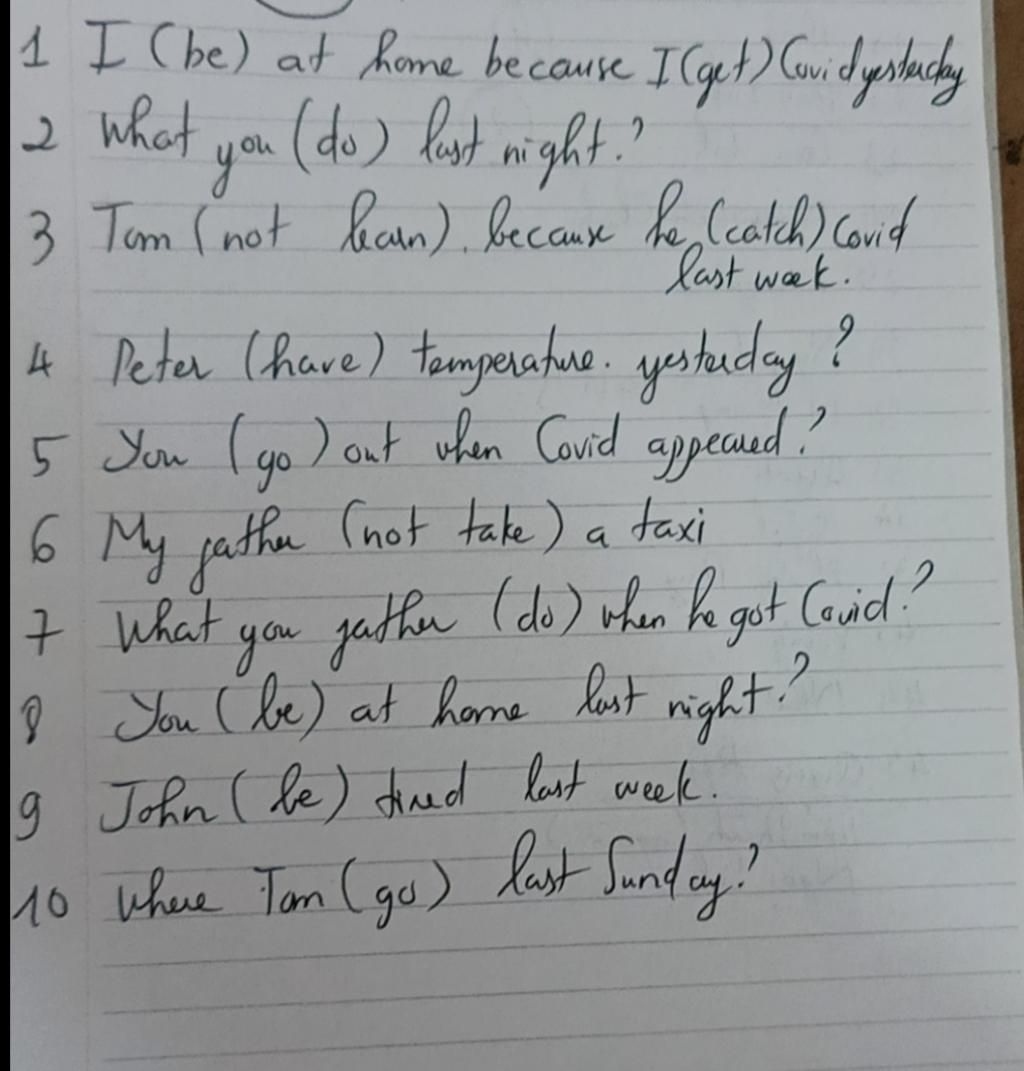 1 I (be) at home because I (get) Covid yesterday
2 What you (do) last night?
3 Tom (not learn). because he (catch) Covid
last week.
4 Peter (have) temperature. yesterday ?
5 You (go) out when Covid appeared?
6 My father (not take) a taxi
7 What you father (do) when he got Covid?
8 You (be) at home last night?
9 John (be) tired last week.
10 Where Tom (go) last Sunday?